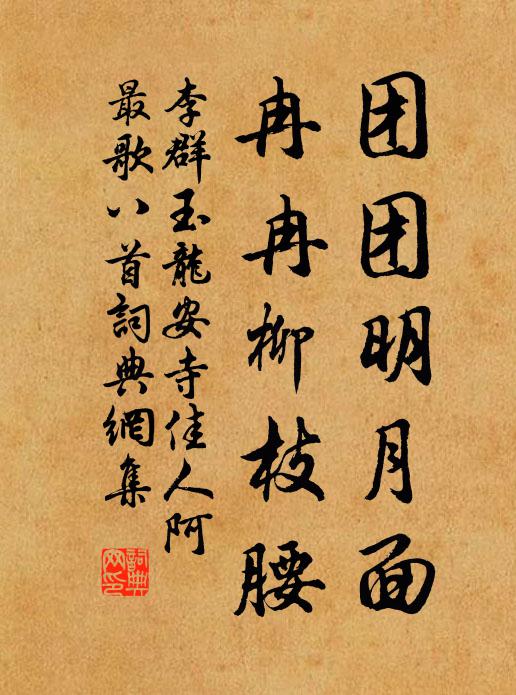 团团明月面
冉冉柳枝腰
李群玉龍安寺佳人阿
最歌八首詞典網集
詞典
网印